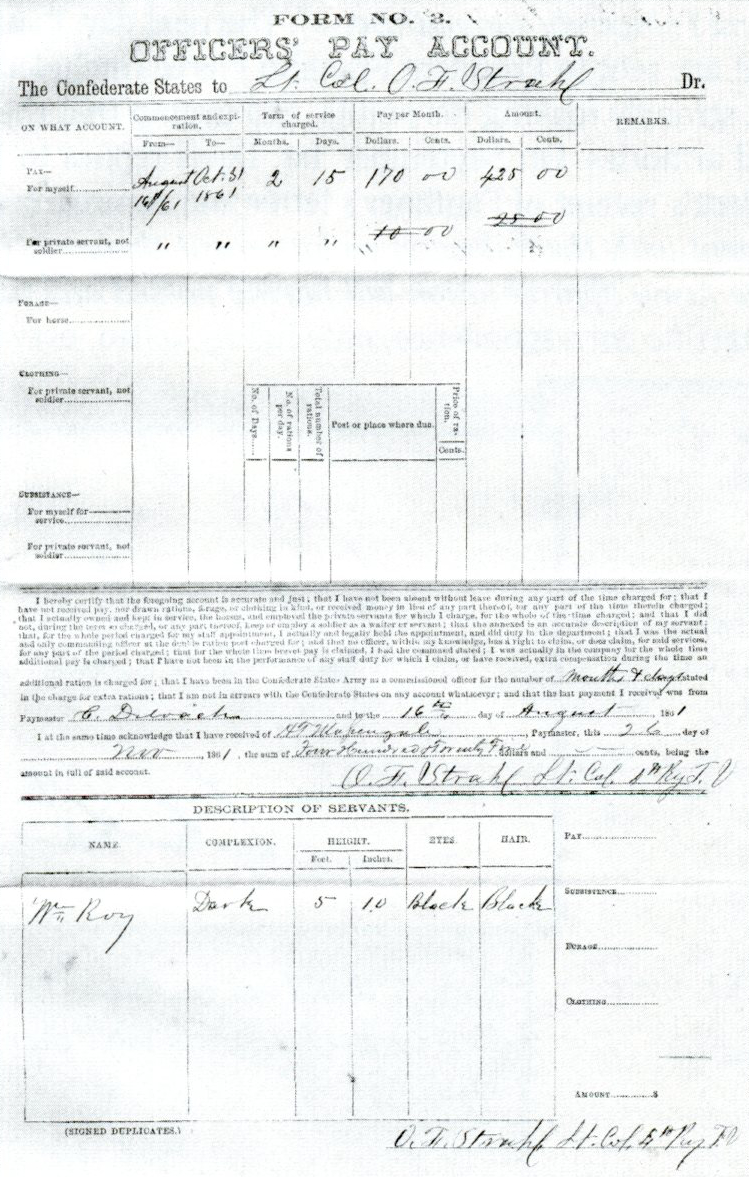 FORM NO. 3.
OFFICERS' PAY ACCOUNT.
The Confederate States to Lt. Col. O. F. Strahl Dr.
ON WHAT ACCOUNT. Commencement and expiration. Term of service charged. Pay per Month. Amount. REMARKS.
From— To— Months. Days. Dollars. Cents. Dollars. Cents.
PAY—
For myself August 16th/61 Oct. 31 1861 2 15 170 00 425 00
25 00
For private servant, not soldier " " " " 10 00
FORAGE—
For horse
CLOTHING—
For private servant, not soldier
No. of Days. No. of rations per day. Total number of rations. Post or place where due. Price of ration.
Cents.
SUBSISTANCE—
For myself for service
For private servant, not soldier
I hereby certify that the foregoing account is accurate and just; that I have not been absent without leave during any part of the time charged for; that I
have not received pay, nor drawn rations, forage, or clothing in kind, or received money in lieu of any part thereof, for any part of the time therein charged;
that I actually owned and kept in service, the horses, and employed the private servants for which I charge, for the whole of the time charged; and that I did
not, during the term so charged, or any part thereof, keep or employ a soldier as a waiter or servant; that the annexed is an accurate description of my servant;
that, for the whole period charged for my staff appointment, I actually and legally held the appointment, and did duty in the department; that I was the actual
and only commanding officer at the double ration post charged for; and that no officer, within my knowledge, has a right to claim, or does claim, for said services,
for any part of the period charged; that for the whole time brevet pay is claimed, I had the command stated; I was actually in the company for the whole time
additional pay is charged; that I have not been in the performance of any staff duty for which I claim, or have received, extra compensation during the time an
additional ration is charged for; that I have been in the Confederate States Army as a commissioned officer for the number of months & days stated
in the charge for extra rations; that I am not in arrears with the Confederate States on any account whatsoever; and that the last payment I received was from
Paymaster C. and to the 16th day of August 1861
I at the same time acknowledge that I have received of Paymaster, this 26 day of
Nov 1861, the sum of Four Hundred & Twenty Five dollars and cents, being the
amount in full of said account. O. F. Strahl Lt. Col. 4th Rg T. V
DESCRIPTION OF SERVANTS.
NAME. COMPLEXION. HEIGHT. EYES. HAIR. PAY
Feet. Inches.
Wm Roy Dark 5 10 Black Black
SUBSISTENCE
FORAGE
CLOTHING
AMOUNT $
(SIGNED DUPLICATES.) O. F. Strahl Lt. Col. 4th Rg T. V